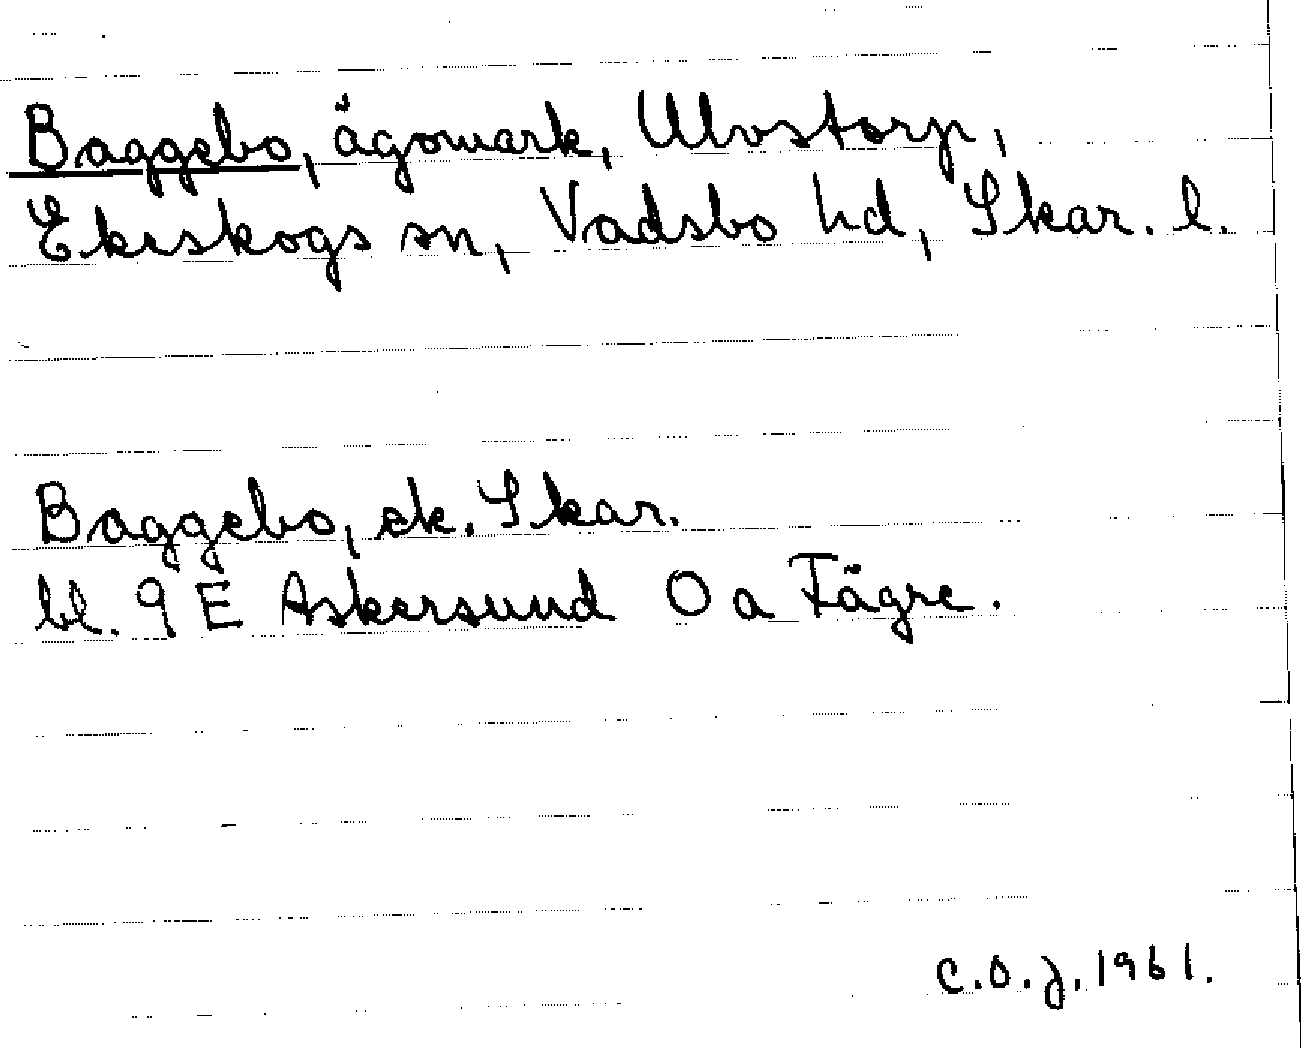 Baggebo, ägomark, Ulvstorp,
Ekeskogs sn, Vadsbo hd, Skar. l.
Baggebo, ek. Skar.
bl. 9 E Askersund O a Fägre.
C.O.J. 1961.